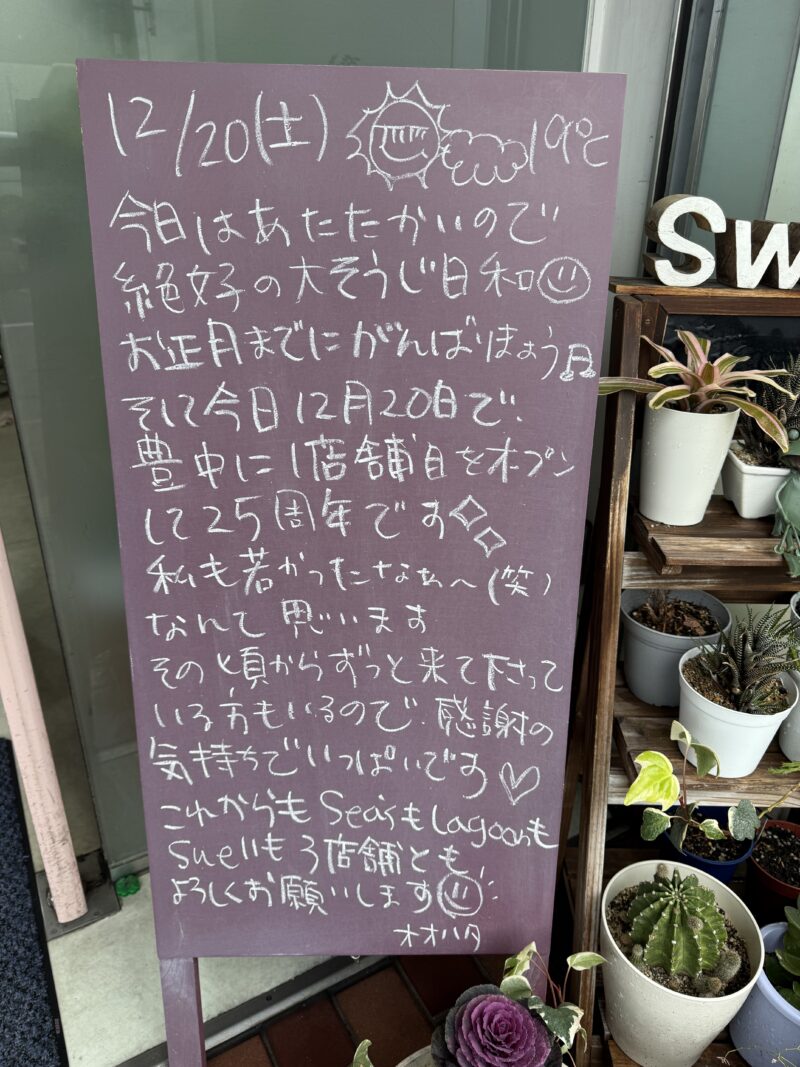 12/20(土) 19℃
今日はあたたかいので
絶好の大そうじ日和
お正月までにがんばりまょう♫
そして今日12月20日で、
豊中に1店舗目をオープン
して25周年です
私も若かったなぁ〜(笑)
なんて思います
その頃からずっと来て下さって
いる方もいるので、感謝の
気持ちでいっぱいです♡
これからもSea'sもLagoonも
Swellも3店舗とも
よろしくお願いします
オオハタ
Sw